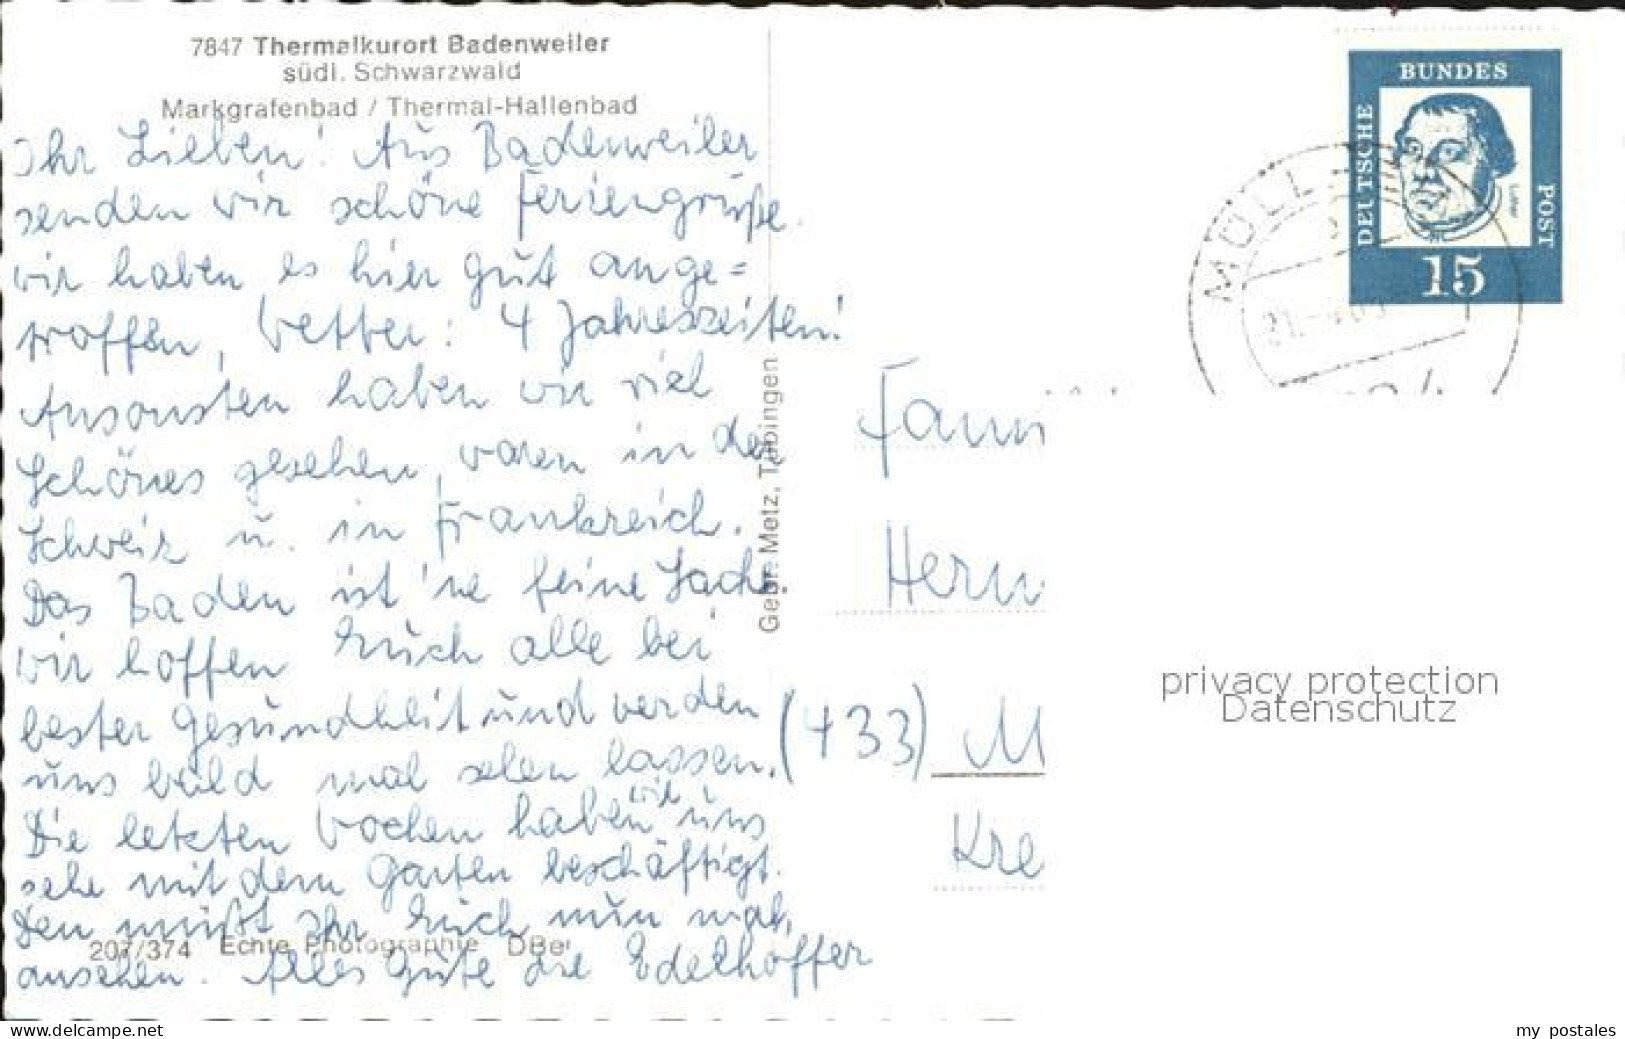 7847 Thermalkurort Badenweiler
südl. Schwarzwald
Markgrafenbad / Thermal-Hallenbad
Ihr Lieben! Aus Badenweiler
senden wir schöne Feriengrüße.
Wir haben es hier gut ange=
troffen, Wetter: 4 Jahreszeiten!
Ansonsten haben wir viel
Schönes gesehen, waren in der
Schweiz u. in Frankreich.
Das Baden ist 'ne feine Sache.
Wir hoffen Euch alle bei
bester Gesundheit und werden
uns bald mal sehen lassen.
Die letzten Wochen haben wir uns
sehr mit dem Garten beschäftigt.
Den müßt Ihr Euch nun mal
ansehen. Alles Gute die Edelhöffer
207/374 Echte Photographie
Gebr. Metz, Tübingen
DEUTSCHE
BUNDES
POST
Luther
15
MÜLL
21.
Herrn
(433) M
Kre
privacy protection
Datenschutz
www.delcampe.net
my postales